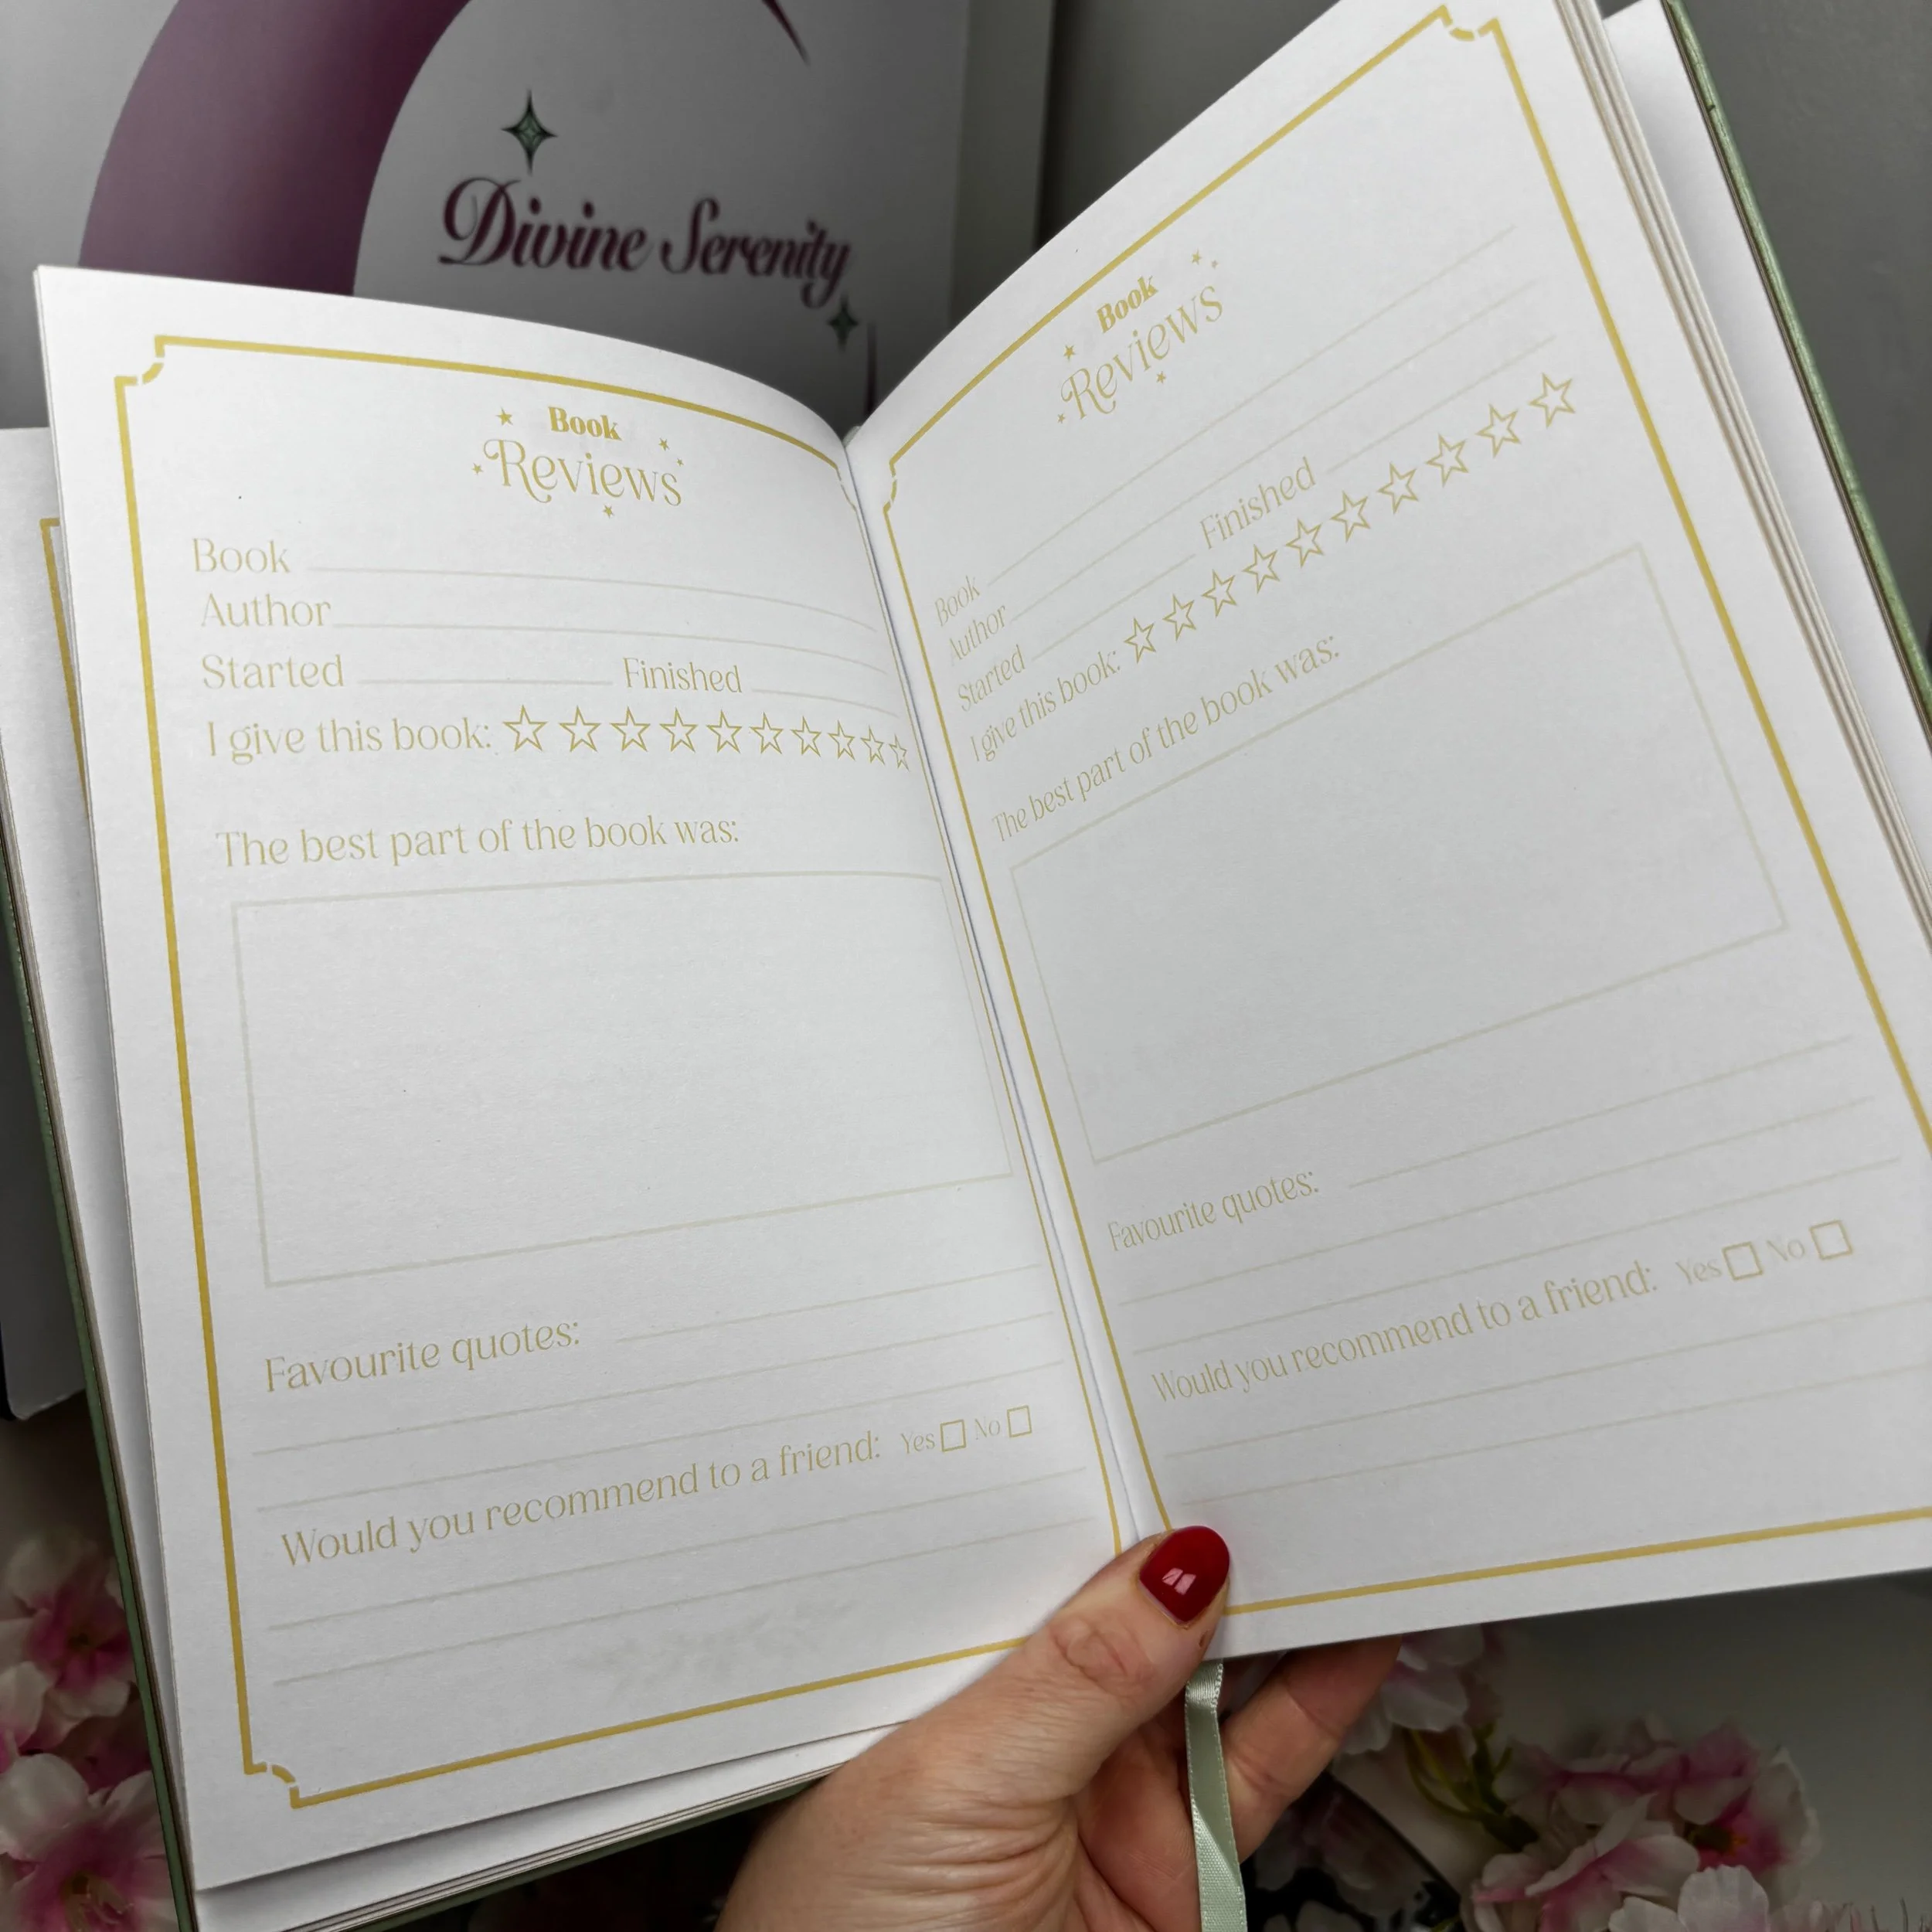 Divine Serenity
Book
Reviews
Book
Author
Started Finished
I give this book:
The best part of the book was:
Favourite quotes:
Would you recommend to a friend: Yes No
Book
Reviews
Book
Author
Started Finished
I give this book:
The best part of the book was:
Favourite quotes:
Would you recommend to a friend: Yes No